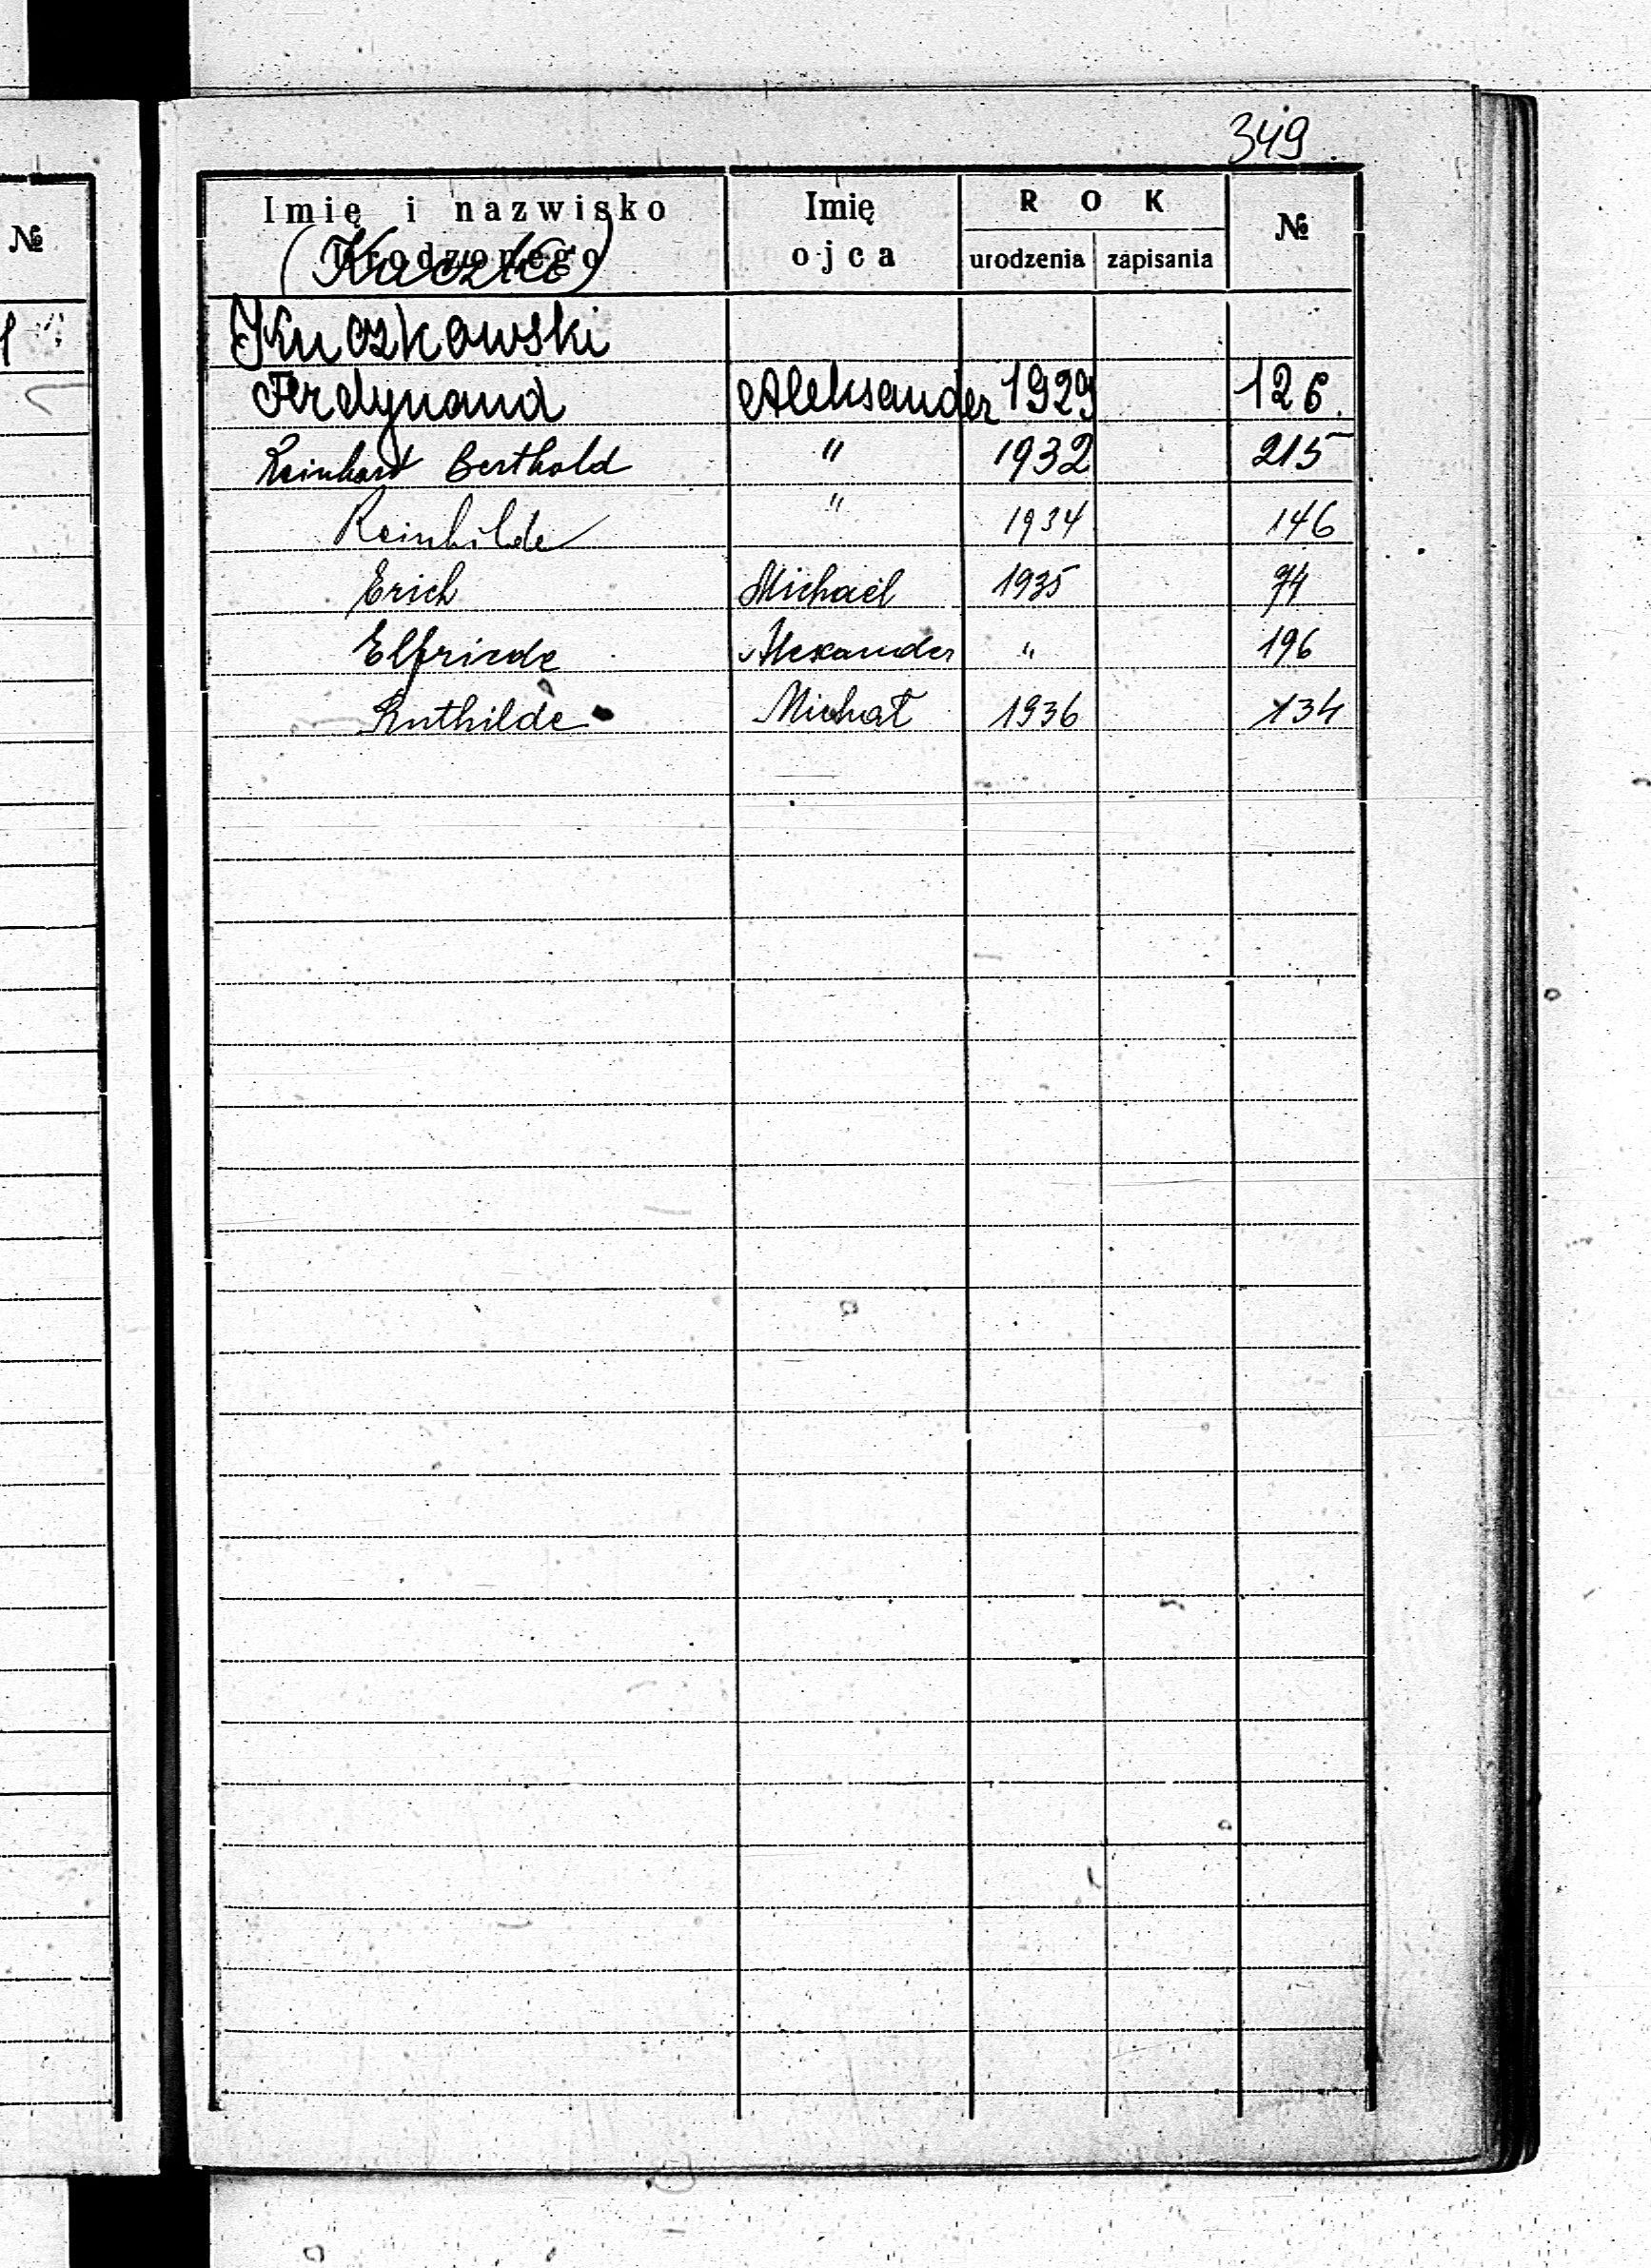 349
№
Imię i nazwisko Imię ROK №
Urodzonego ojca urodzenia zapisania
(Kuczko)
Kuczkowski
Ferdynand Aleksander 1929 126.
Reinhart Berthold " 1932 215
Reinhilde " 1934 146
Erich Michael 1935 74
Elfriede Alexander " 196
Ruthilde Michał 1936 134